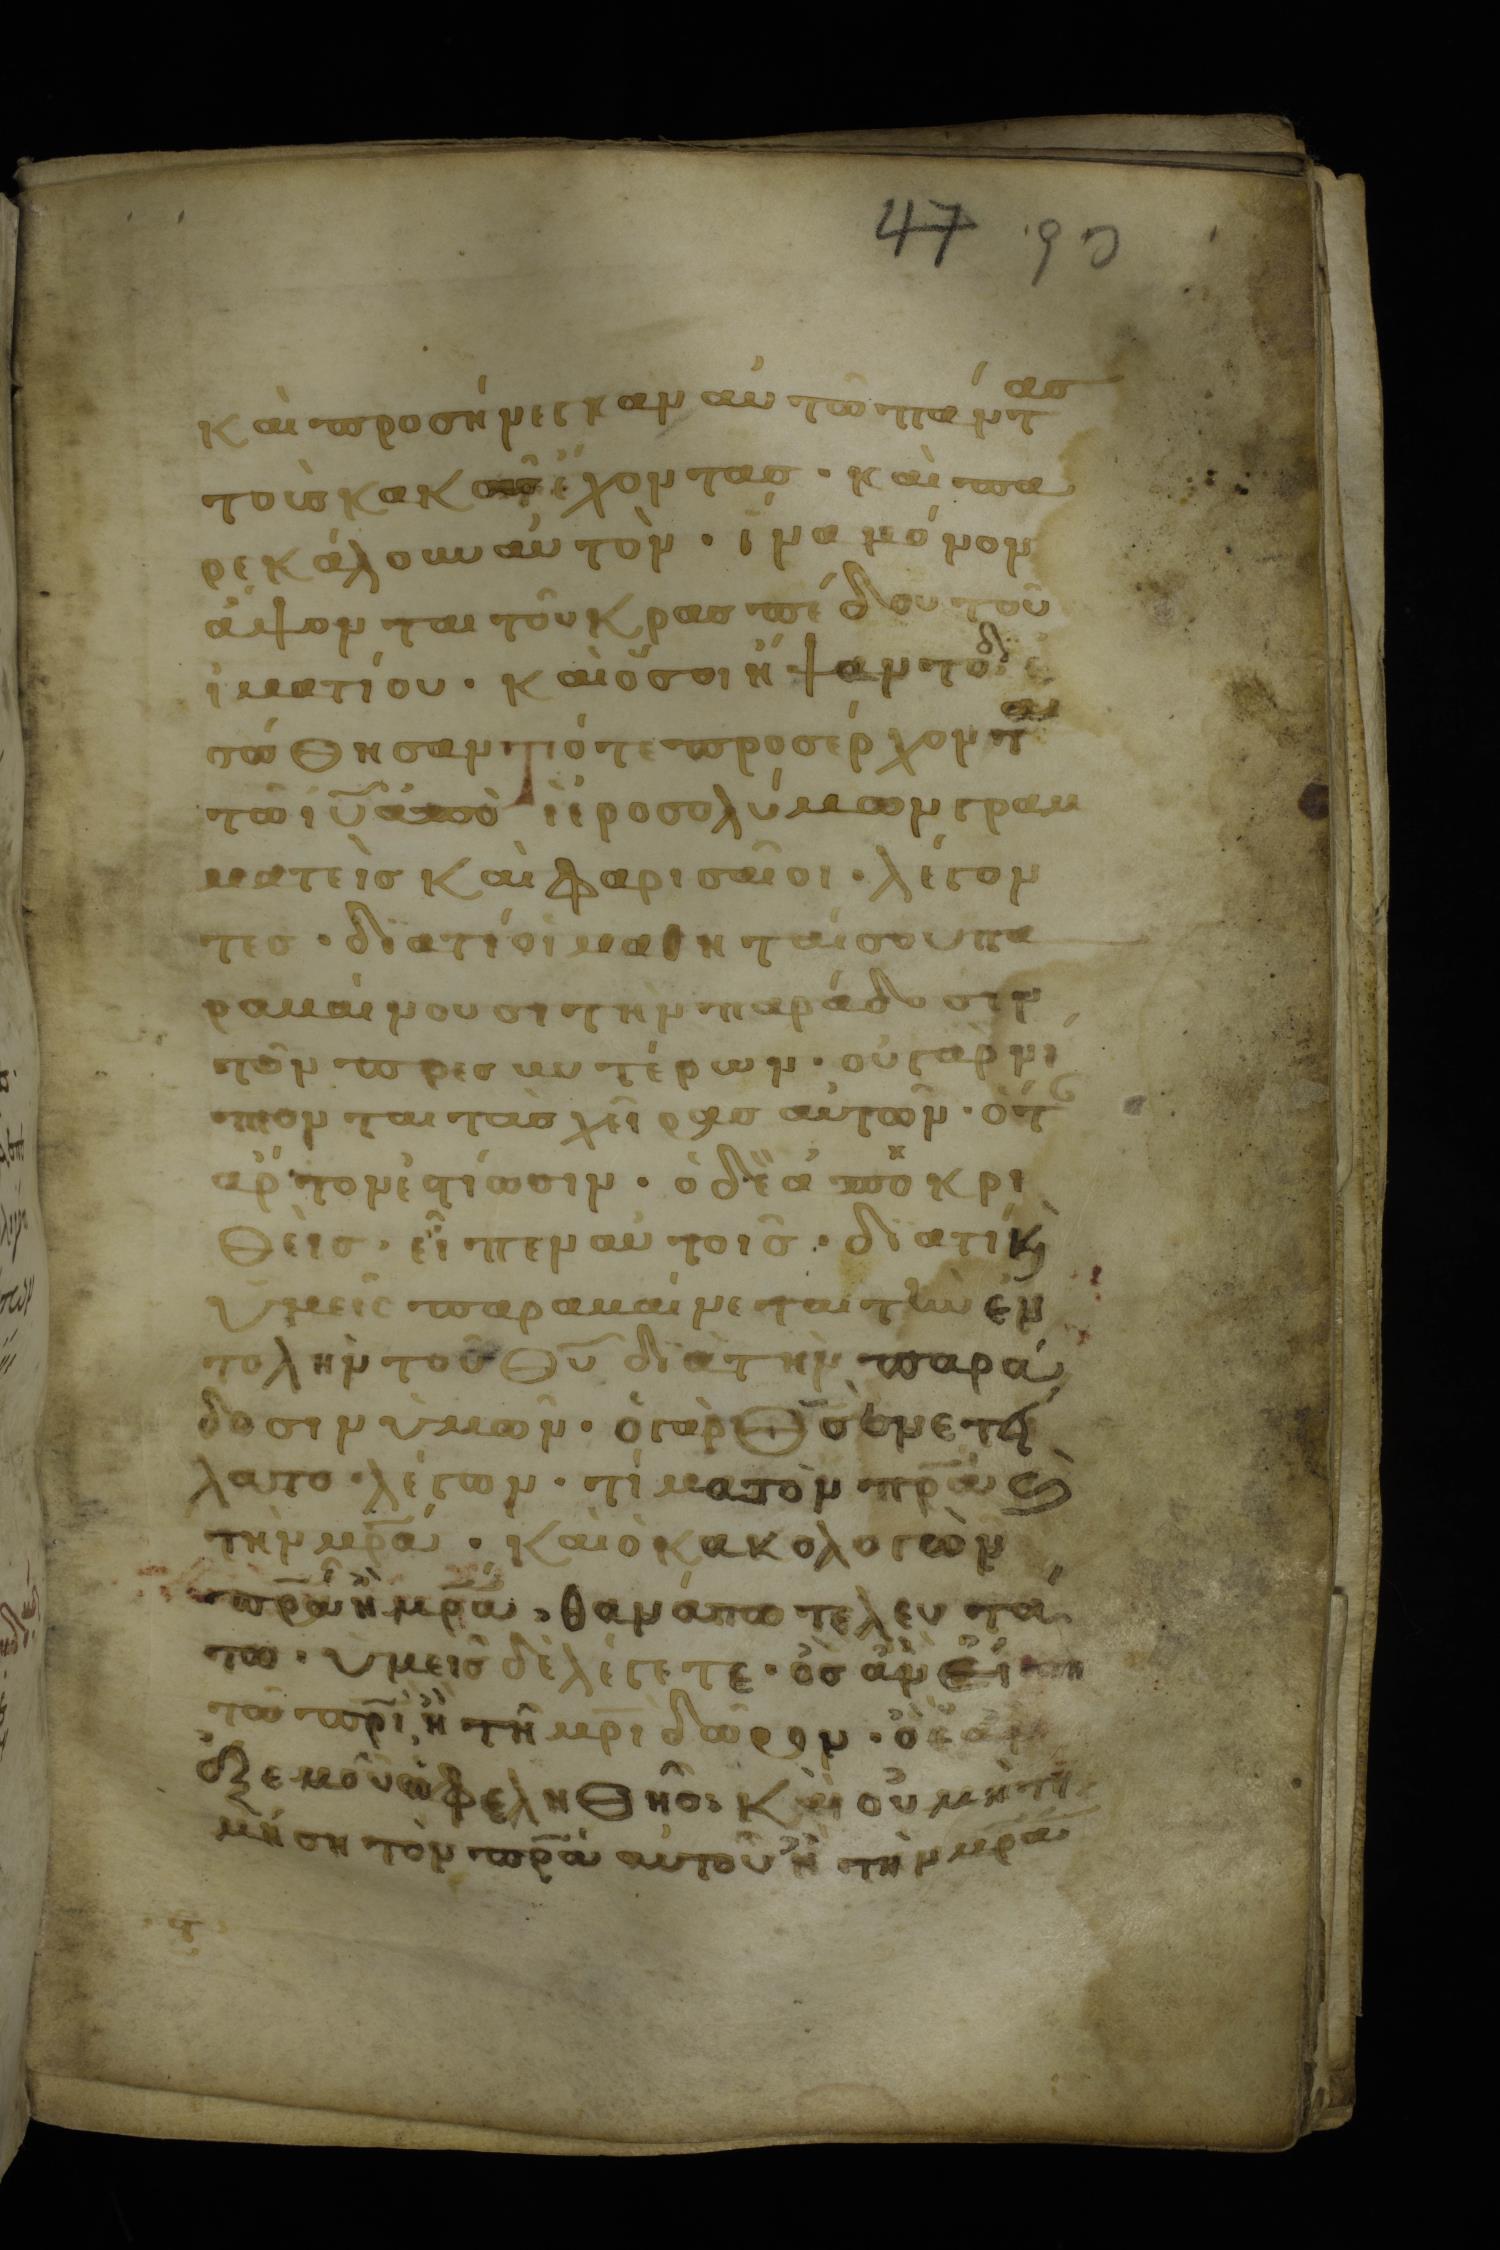 47 90
καὶ προσήνεγκαν αὐτῶ πάντας
τοὺς κακῶς ἔχοντας · καὶ πα
ρεκάλουν αὐτὸν · ἵνα μόνον
ἅψονται τοῦ κρασπέδου τοῦ
ἱματίου · καὶ ὅσοι ἥψαντο δι
σώθησαν Τότε προσέρχονται
τῶ ιῦ ἀπὸ ἱεροσολύμων γραμ
ματεῖς καὶ φαρισαῖοι · λέγον
τες · διατί οἱ μαθηταί σου πα
ραβαίνουσι τὴν παράδοσιν
τῶν πρεσβυτέρων · οὐ γὰρ νί
πτονται τὰς χεῖρας αὐτῶν · ὅτ
ἄρτον ἐσθίωσιν · ὁ δὲ ἀποκρι
θεὶς · εἶπεν αὐτοῖς · διατί κ
ὑμεῖς παραβαίνεται τὴν ἐν
τολὴν τοῦ θῦ διὰ τὴν παρά
δοσιν ὑμῶν · ὁ γὰρ θς ἐνετεί
λατο · λέγων · τίμα τὸν πρα κ
τὴν μρα · καὶ ὁ κακολογῶν
πρα ἢ μρα · θανάτω τελευτά
τω · ὑμεῖς δὲ λέγετε · ὃς ἂν εἴπη
τῶ πρι ἢ τῆ μρι δῶρον · ὃ ἐὰν
ἐξ ἐμοῦ ὠφεληθῆς · καὶ οὐ μὴ τι
μήση τὸν πρα αὐτοῦ ἢ τὴν μρα